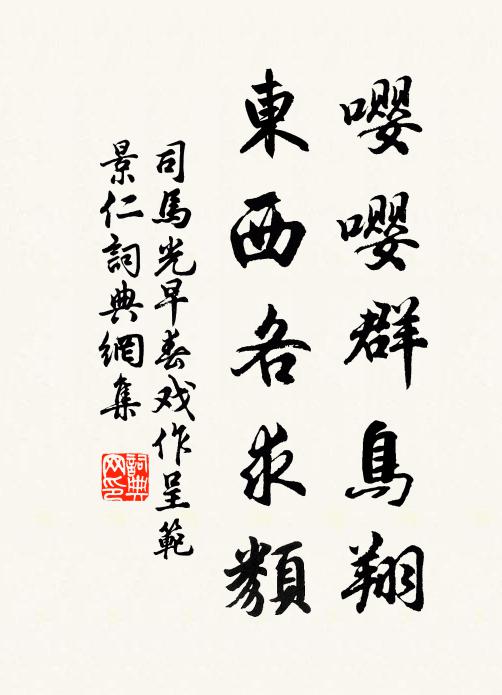 嚶嚶群鳥翔
東西各求類
司馬光早春戏作呈範
景仁詞典網集
詞典網印